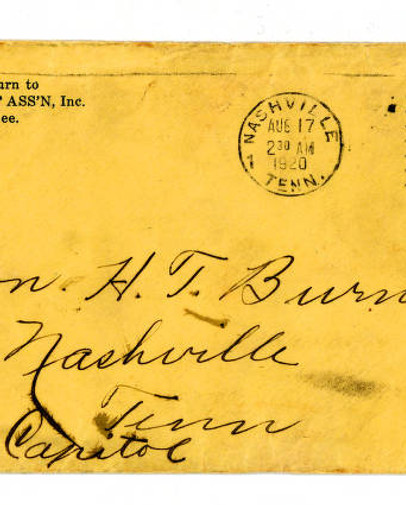 urn to
' ASS'N, Inc.
ee.
NASHVILLE
AUG 17
2 30 AM
1920
1
TENN.
on. H. T. Burn
Nashville
Tenn
Capitol